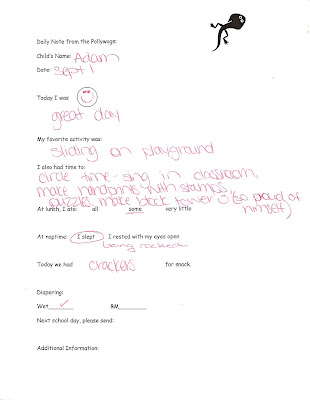 Daily Note from the Pollywogs:
Child's Name: Adam
Date: Sept 1
Today I was
great day
My favorite activity was:
sliding on playground
I also had time to:
circle time - sing in classroom,
make handprints with stamps
puzzles, make block tower (so proud of
himself)
At lunch, I ate: all some very little
At naptime: I slept I rested with my eyes open
being rocked
Today we had crackers for snack.
Diapering:
Wet BM
Next school day, please send:
Additional Information: